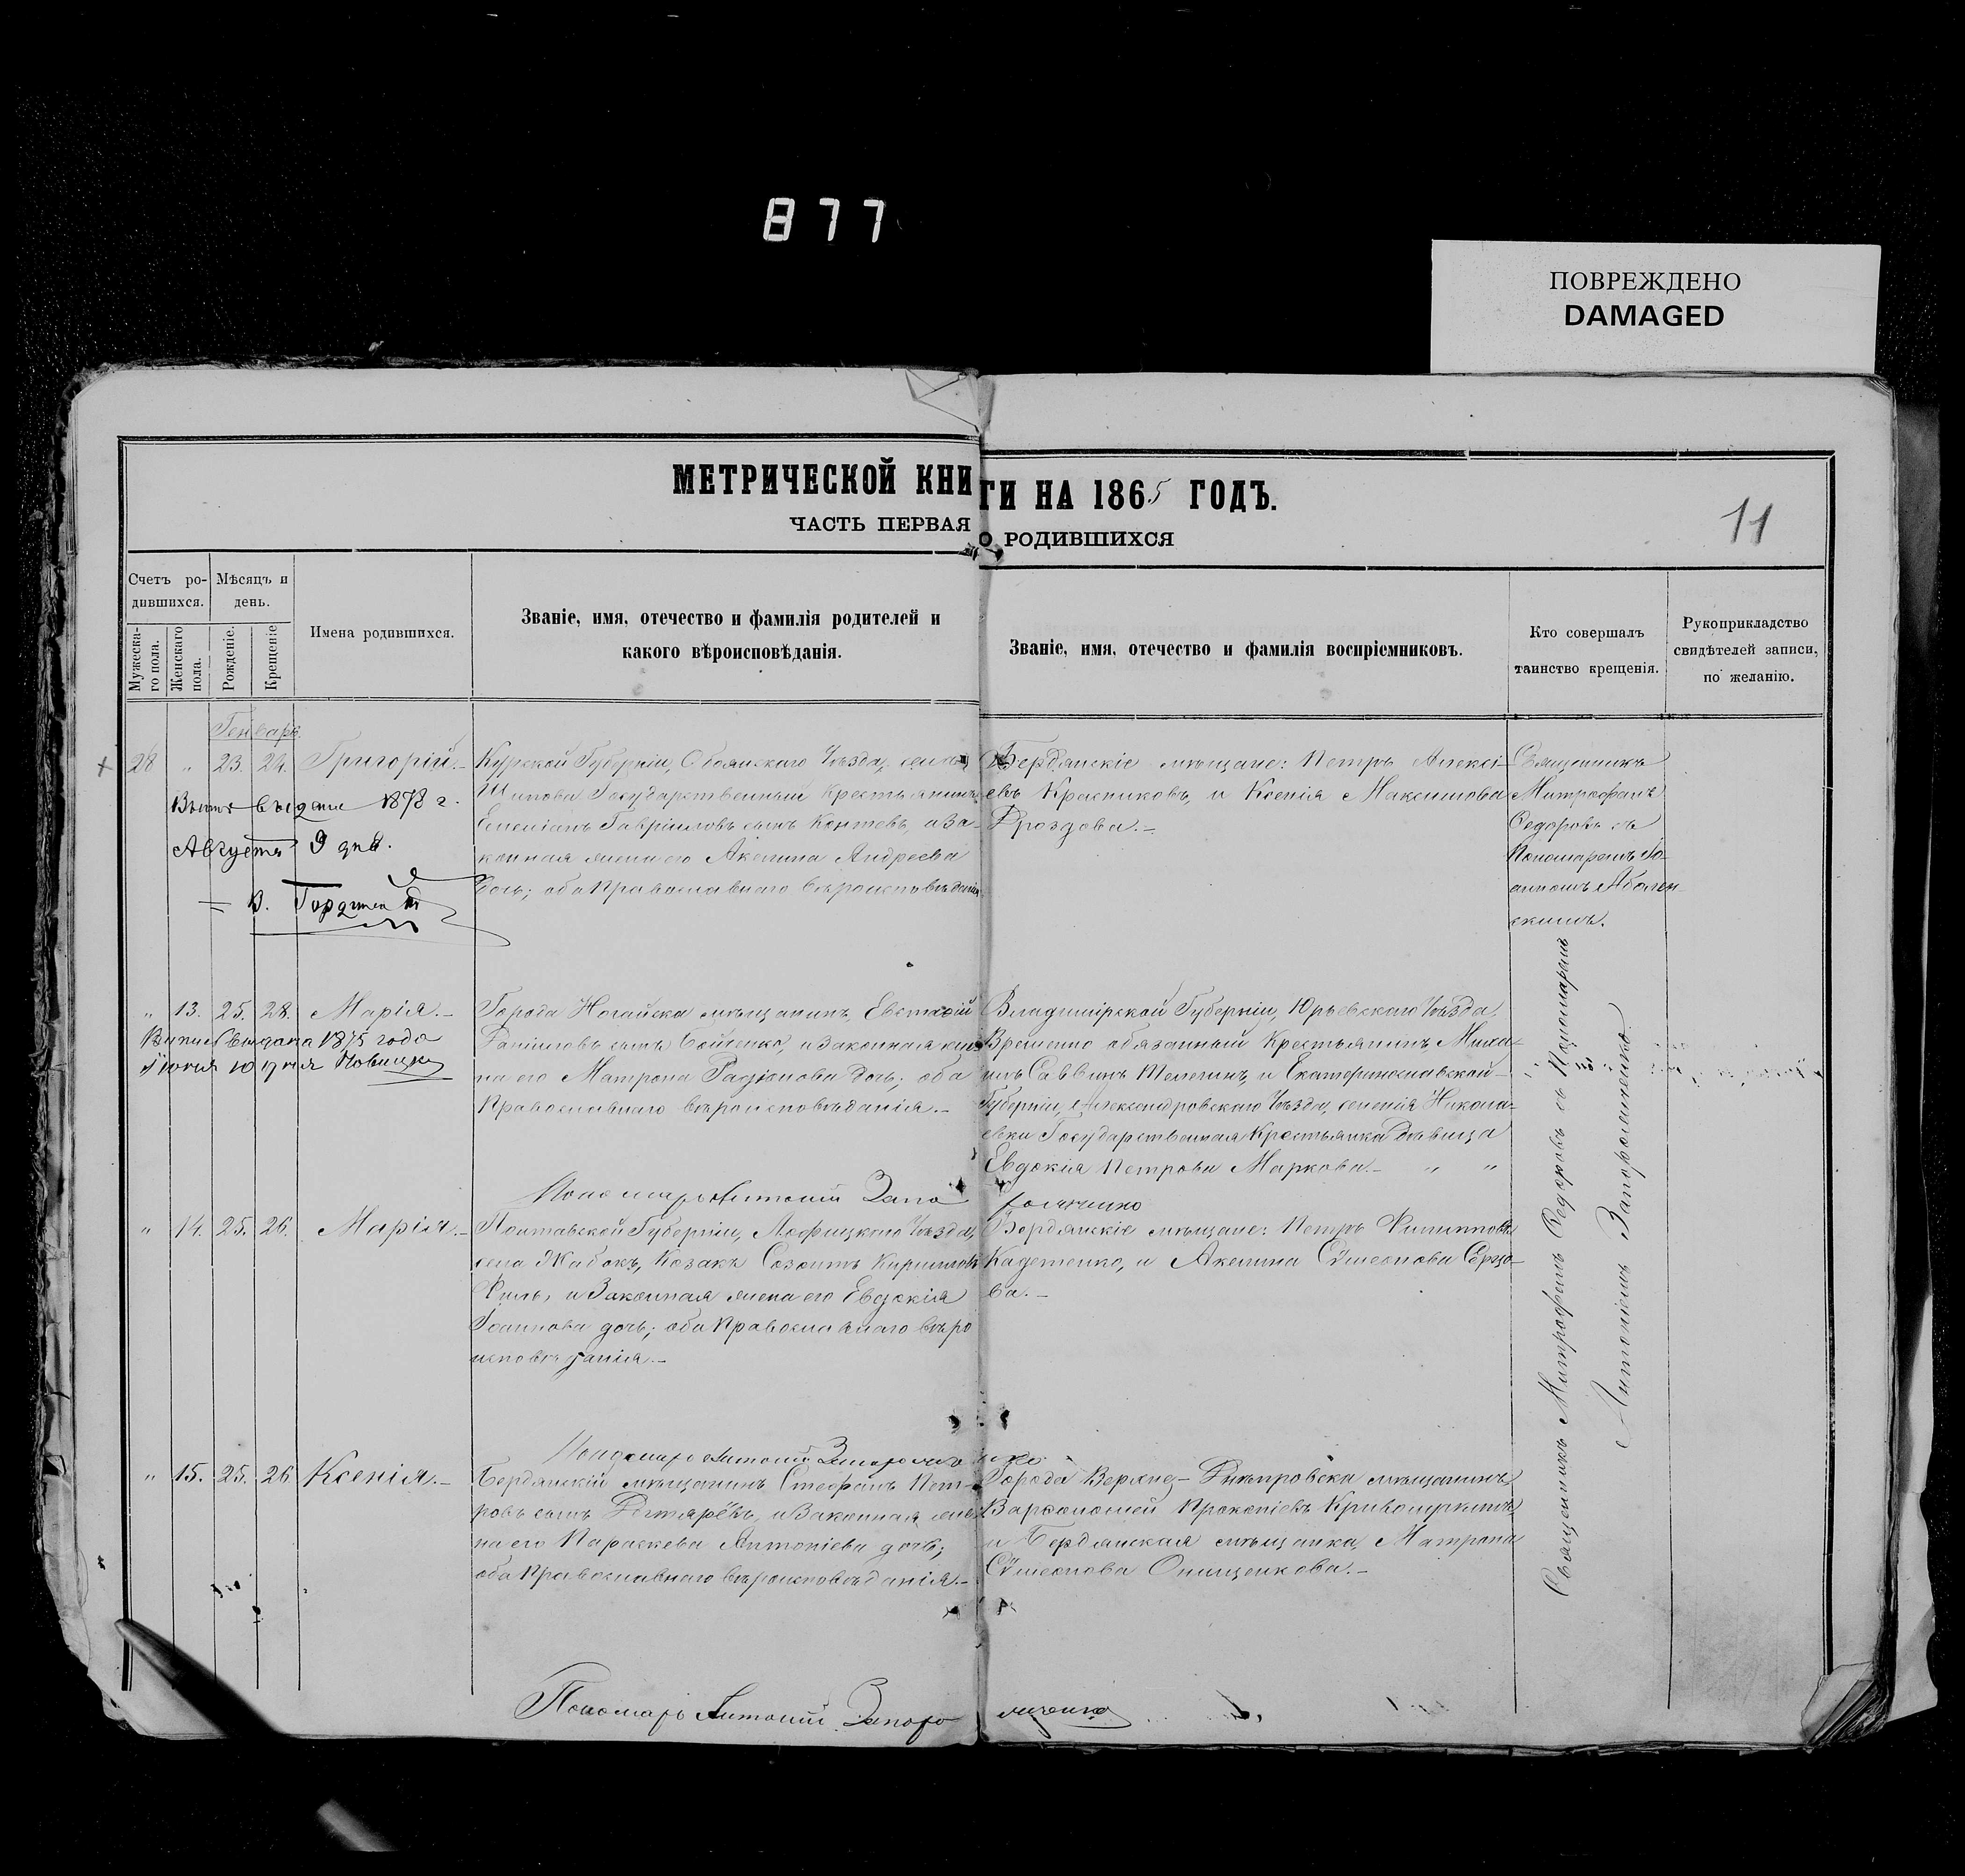 877
ПОВРЕЖДЕНО
DAMAGED
МЕТРИЧЕСКОЙ КНИГИ НА 1865 ГОДЪ.
ЧАСТЬ ПЕРВАЯ О РОДИВШИХСЯ
11
Счетъ ро-
дившихся.
Мужеска-
го пола.
Женскаго
пола.
Мѣсяцъ и
день.
Рожденіе.
Крещеніе
Имена родившихся.
Званіе, имя, отечество и фамилія родителей и
какого вѣроисповѣданія.
Званіе, имя, отечество и фамилія воспріемниковъ.
Кто совершалъ
таинство крещенія.
Рукоприкладство
свидѣтелей записи,
по желанію.
Генварь.
28 " 23. 24. Григорій.-
1878 г.
Августа 9 дня.
Курской Губерніи, Обоянскаго Уѣзда, села
Шипова Государственный Крестьянинъ
Гавріиловъ сынъ Коптевъ, и За-
конная жена его Акилина Андреева
дочь; оба Православнаго вѣроисповѣданія.
Бердянскіе мѣщане: Петръ Алексі-
евъ Красниковъ, и Ксенія Максимова
Дроздова.-
Священникъ
Митрофанъ
Ѳедоровъ съ
Пономаремъ Іо-
анномъ Аболен-
скимъ.
" 13. 25. 28. Марія.-
выдана 1875 года
Іюня 10 дня Новицкій
Города Ногайска мѣщанинъ, Евстафій
Даніиловъ сынъ Бойченко, и Законная же-
на его Матрона Родіонова дочь; оба
Православнаго вѣроисповѣданія.-
Владимірской Губерніи, Юрьевскаго Уѣзда,
Временно обязанный Крестьянинъ, Миха-
илъ Саввинъ Телегинъ, и Екатеринославской
Губерніи, Александровскаго Уѣзда, селенія Никола-
евки Государственная Крестьянка дѣвица
Евдокія Петрова Маркова.- " "
Пономарь Антоній Запороженко
" 14. 25. 26. Марія.-
Полтавской Губерніи, Лохвицкаго Уѣзда,
села Жабокъ, Козакъ Созонтъ Кирилловъ
и Законная жена его Евдокія
Іоаннова дочь; оба Православнаго вѣро
исповѣданія.-
Бердянскіе мѣщане: Петръ Филипповъ
Кадетенко, и Акилина Сѵмеонова
ва.-
Пономарь Антоній
" 15. 25. 26 Ксенія.-
Бердянскій мѣщанинъ Стефанъ Пет-
ровъ сынъ Дегтярёвъ, и Законная же-
на его Параскева Антоніева дочь;
оба Православнаго вѣроисповѣданія.-
Города Верхне-Днѣпровска мѣщанинъ,
Варфоломей Прокопіевъ
и Бердянская мѣщанка Матрона
Сѵмеонова Онищенкова.-
Священникъ Митрофанъ Ѳедоровъ съ Пономаремъ
Антоніемъ Запороженко.
Пономарь Антоній Запороженко